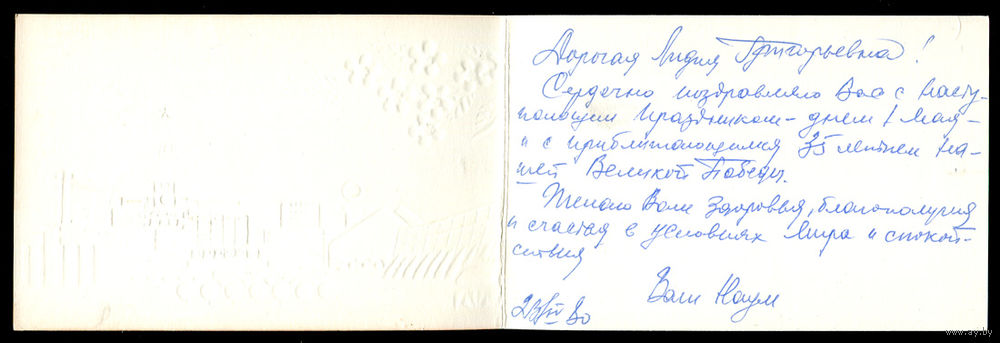 Дорогая Лидия Григорьевна!
Сердечно поздравляю Вас с насту-
пающим праздником - днем 1 мая -
и с приближающимся 35 летием на-
шей Великой Победы.
Желаю Вам здоровья, благополучия
и счастья в условиях мира и спокой-
ствия
Ваш Наум
23/IV 80
www.ay.by